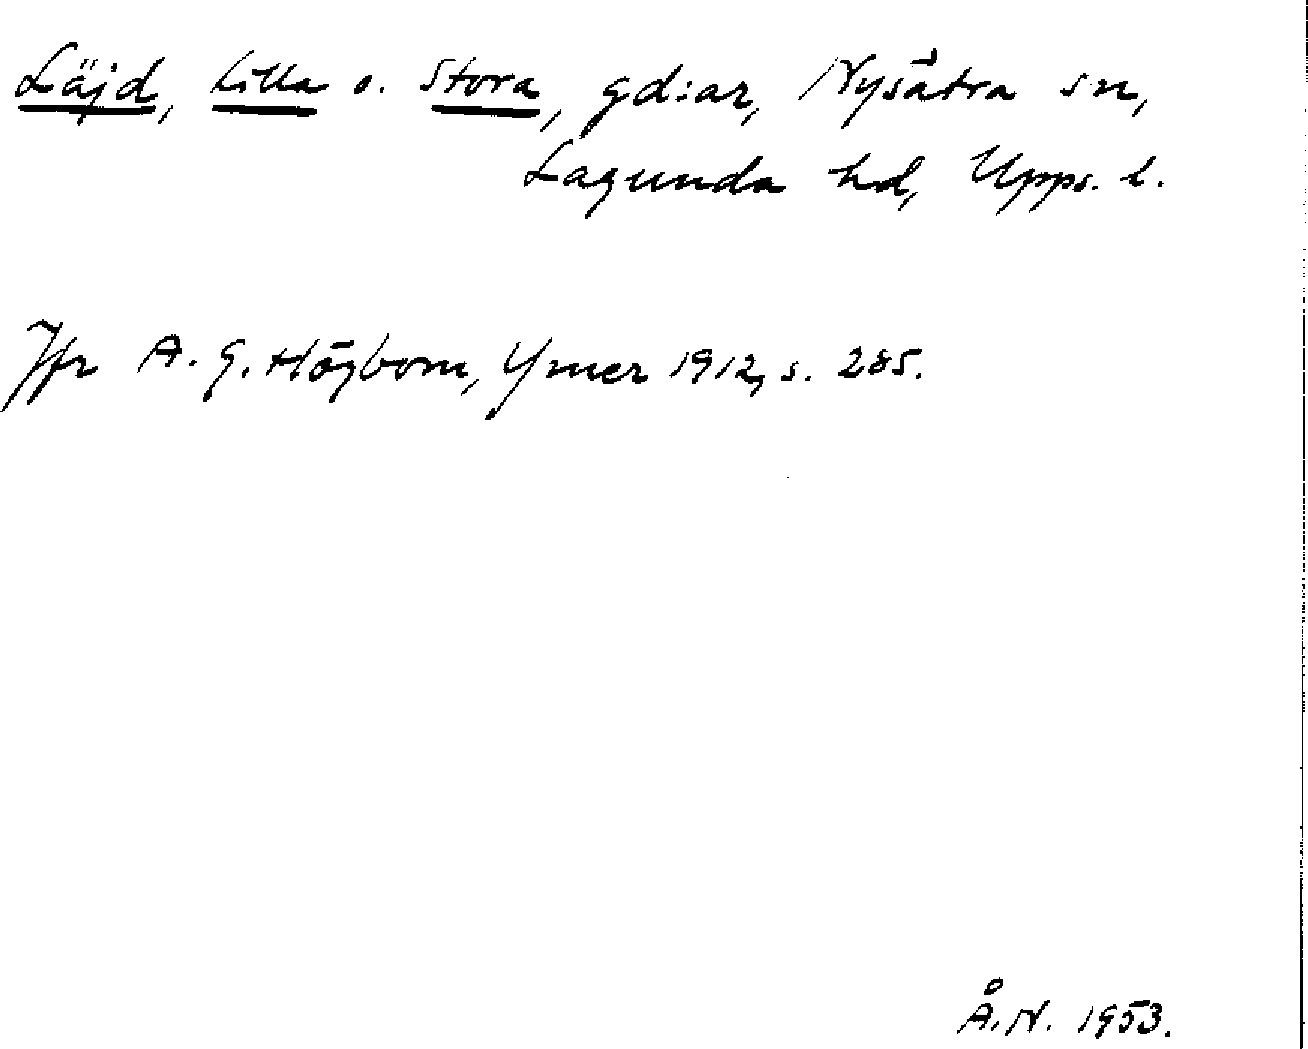 Läjd, Lilla o. Stora, gd:ar, Nysätra sn,
Lagunda hd, Upps. l.
Jfr A. G. Högbom, Ymer 1912, s. 285.
Å. N. 1953.